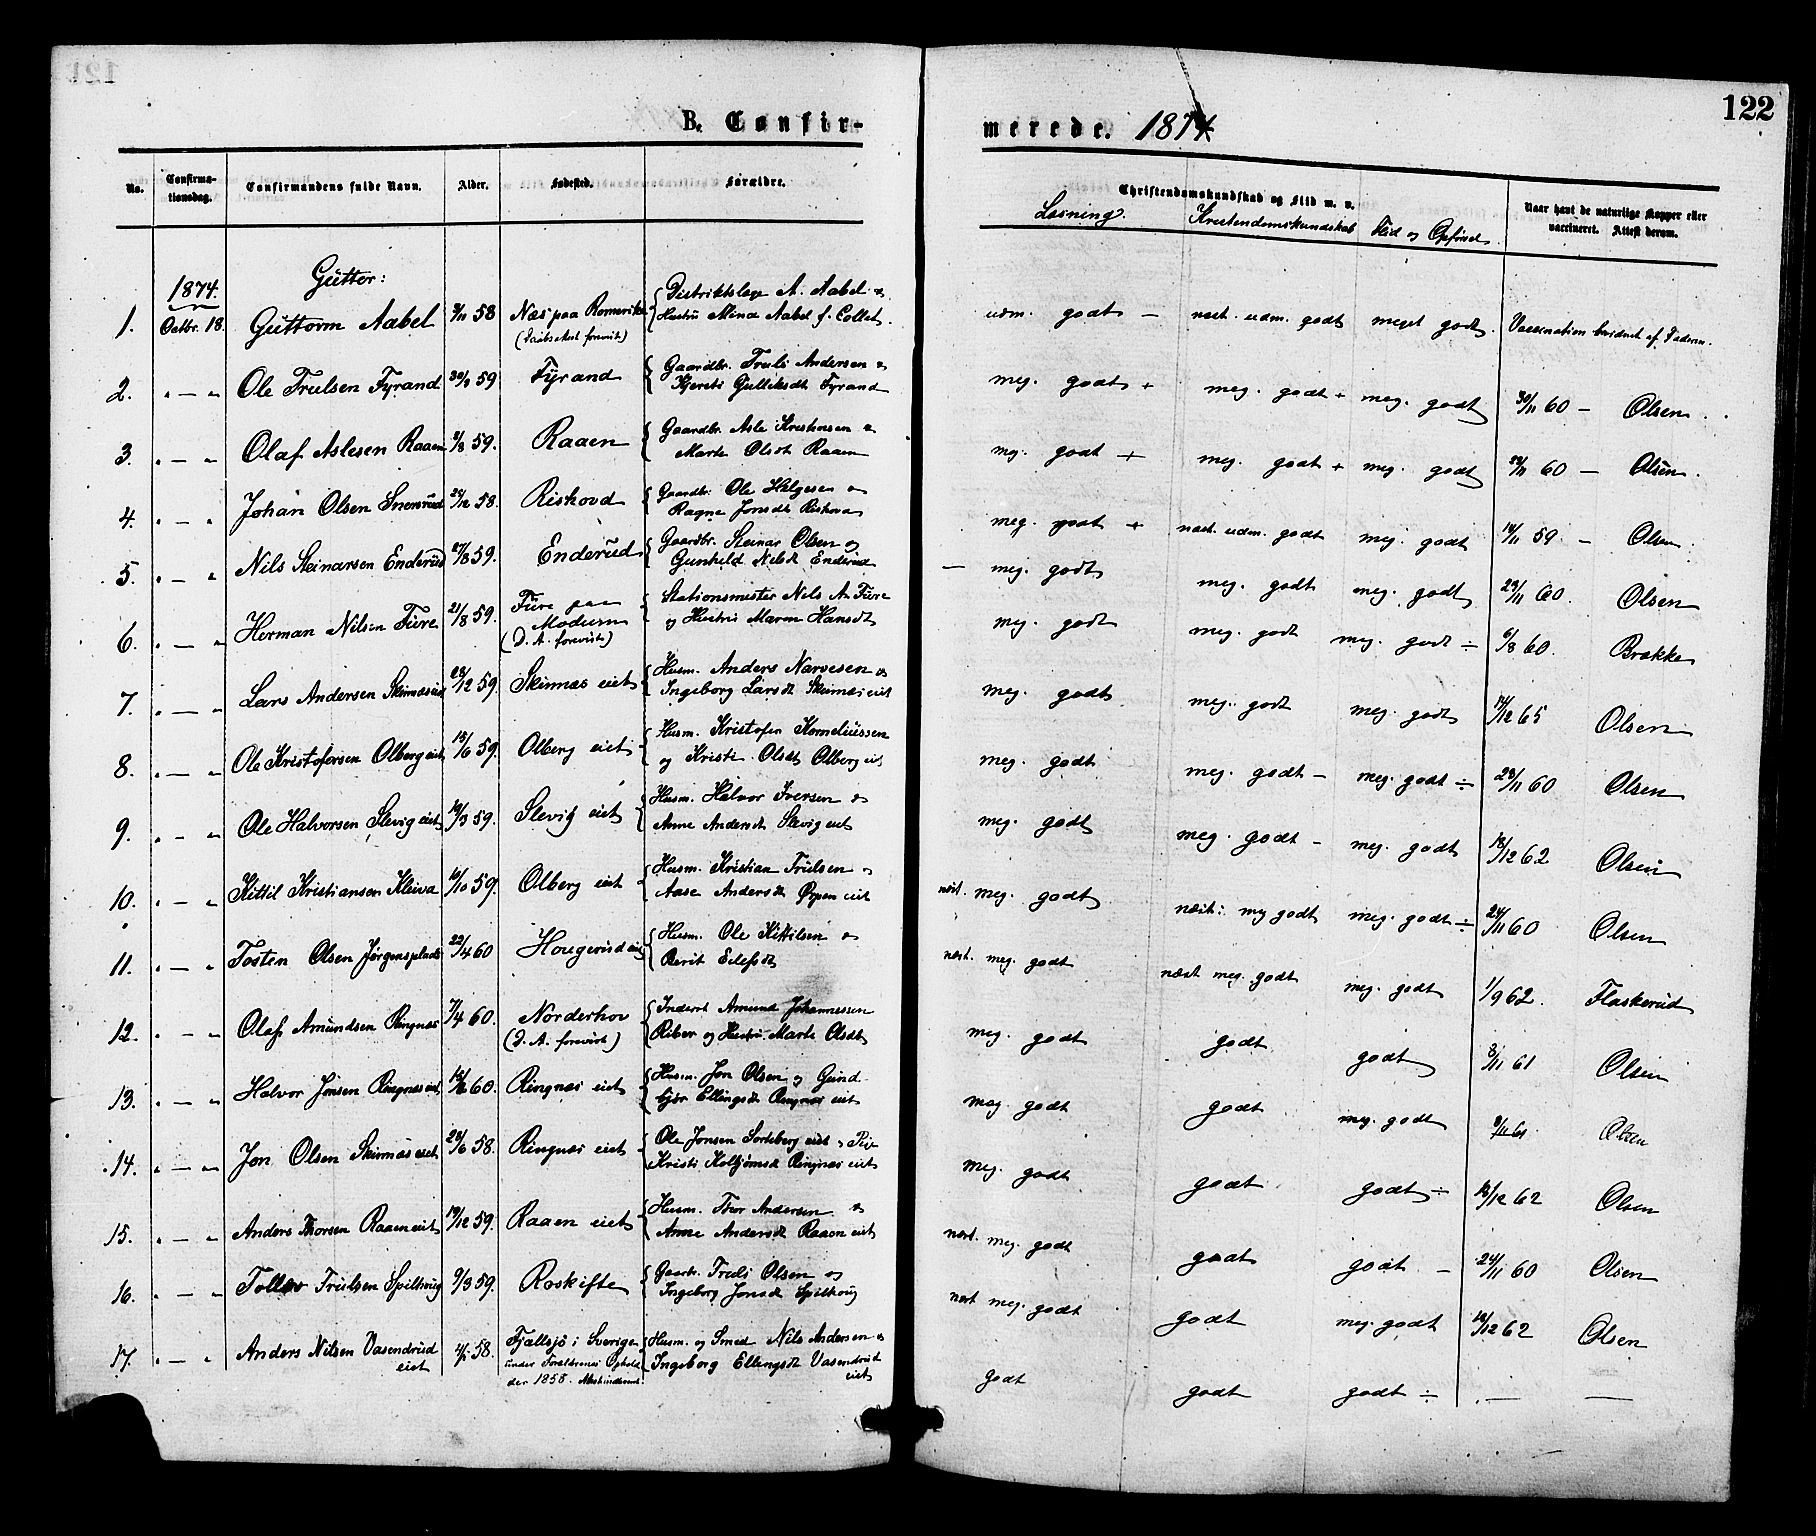 122
B. Confir-
merede. 1874
No. Confirmationsdag. Confirmandens fulde Navn. Alder. Fødested. Forældre. Christendomskundskab og Flid m. v. Naar havt de naturlige Kopper eller vaccineret. Attest derom.
Læsning. Kristendomskundskab Flid og Opførsel
1874. Gutter:
1. Octbr. 18. Guttorm Aabel 58 Næs paa Romerike (Daabsattest forevist) Distriktslæge A. Aabel & Hustru Mina Aabel f. Collet. udm. godt – næst. udm. godt meget godt. Vaccination bevidnet af Faderen.
2. " — " Ole Trulsen Fyrand 59 Fyrand Gaardbr. Truls Andersen & Kjersti Gulliksdt Fyrand meg. godt + meg. godt + meg. godt 30/11 60 – Olsen.
3. " — " Olaf Aslesen Raaen 2/8 59. Raaen Gaardbr. Asle Kristensen & Marte Olsdt Raaen meg. godt + meg. godt + meg. godt 60 – Olsen.
4. " — " Johan Olsen 58. Riskovd Gaardbr. Ole Helgesen & Ragne Jonsdt meg. godt + næst. udm. godt meg. godt 14/11 59 – Olsen
5. " — " Nils Steinarsen Enderud 27/8 59. Enderud Gaardbr. Steinar Olsen og Gunhild Nilsdt Enderud – meg. godt meg. godt meg. godt 23/11 60. Olsen
6. " — " Herman Nilsen Fure 21/8 59. Fure paa Modum (D. A. forevist) Stationsmester Nils A. Fure og Hustru Maren Hansdt meg. godt meg. godt meg. godt ÷ 6/8 60. Brække
7. " — " Lars Andersen Skinnæseiet 23/12 59. Skinnæs eiet Husm. Anders Narvesen & Ingeborg Larsdt Skinnæs eiet meg. godt meg. godt meg. godt 14/12 65 Olsen
8. " — " Ole Kristofersen Olberg eiet 13/6 59. Olberg eiet Husm. Kristofer Korneliussen og Kristi Olsdt Olberg eiet meg. godt meg. godt – meg. godt ÷ 23/11 60 Olsen
9. " — " Ole Halvorsen Slevig eiet 19/3 59. Slevig eiet Husm. Halvor Iversen & Anne Andersdt Slevig eiet meg. godt meg. godt – meg. godt 18/12 62 Olsen
10. " — " Kittil Kristiansen Kleiva 16/10 59. Olberg eiet Husm. Kristian Trulsen & Aase Andersdt Ørpen eiet næst. meg. godt næst: meg godt meg. godt ÷ 24/11 60 Olsen
11. " — " Tosten Olsen Jørgensplads 22/4 60 Hougerud eiet Husm. Ole Kittilsen & Berit Eilefsdt næst. meg. godt næst meg. godt meg. godt 1/9 62. Flaskerud
12. " — " Olaf Amundsen Ringnæs 7/4 60. Norderhov (D. A. forevist) Inderst Amund Johannessen Riber og Hustru Marte Olsdt meg. godt godt godt 8/11 61 Olsen
13. " — " Halvor Jonsen Ringnæs eiet 60. Ringnæs eiet Husm. Jon Olsen og Gundbjør Ellingsdt Ringnæs eiet meg. godt godt meg. godt 9/11 61 Olsen
14. " — " Jon Olsen Skinnæs eiet 28/6 58. Ringnæs eiet Ole Jonsen Sorteberg eiet & Pige Kristi Kolbjørnsdt Ringnæs eiet meg. godt godt godt ÷ 18/12 62 Olsen
15. " — " Anders Thorsen Raaen eiet 19/12 59. Raaen eiet Husm. Thor Andersen & Anne Andersdt Raaen eiet næst. meg. godt godt godt – 24/11 60 Olsen
16. " — " Tollev Trulsen Spilhoug 9/3 59. Roskifte Gaardbr. Truls Olsen og Ingeborg Jonsdt Spilhoug næst meg. godt godt meg. godt 18/12 62 Olsen
17. " — " Anders Nilsen Vasendrud eiet 58. Fjallsjö i Sverige under Forældrenes Ophold der 1858. Husm. og Smed Nils Andersen & Ingeborg Ellingsdt Vasendrud eiet godt godt godt ÷ — —